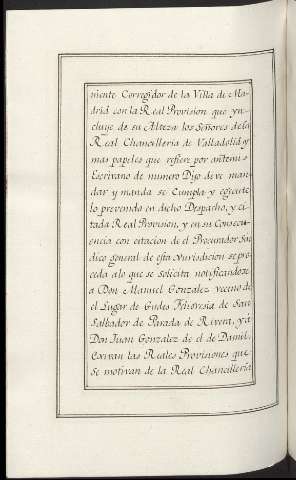 niente Corregidor de la Villa de Ma-
drid con la Real Provision que yn-
cluye de su Alteza los Señores de la
Real Chancilleria de Valladolid, y
mas papeles que refiere por antemi
Escrivano de numero Dijo deve man-
dar y manda se Cumpla y egecute
lo prevenido en dicho Despacho, y ci-
tada Real Provision, y en su Consecu-
encia con citacion de el Procurador Sin-
dico general de esta Jurisdicion se pro-
ceda alo que se solicita notificandose
a Don Manuel Gonzalez vecino de
el Lugar de Gudes Feligresia de San
Salbador de Parada de Rivera, y á
Don Juan Gonzalez de el de Damil,
Exivan las Reales Provisiones que
se motivan de la Real Chancilleria